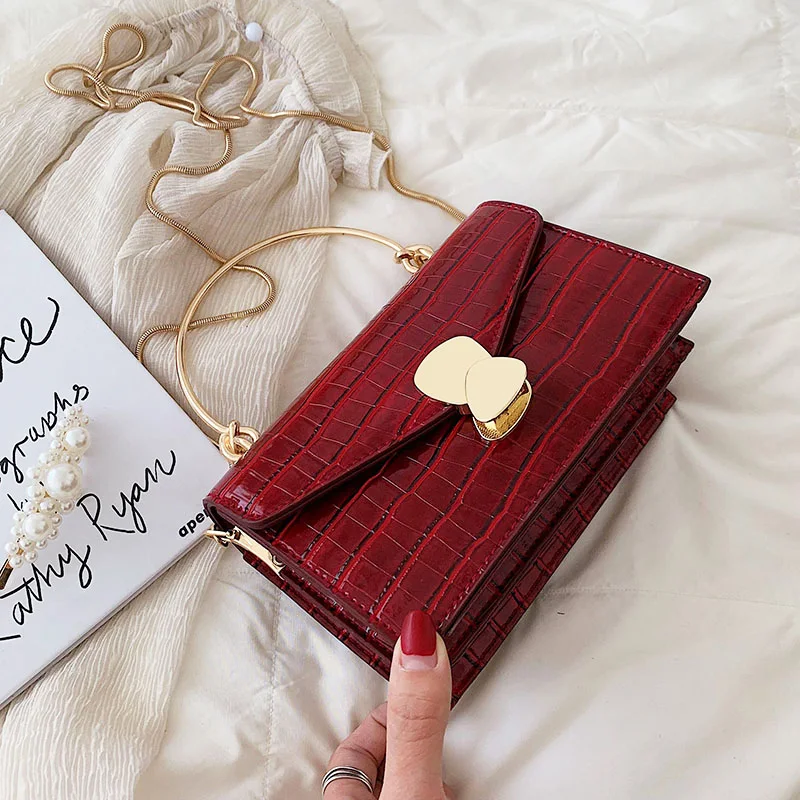 ce
ographs
by
Kathy Ryan
ape